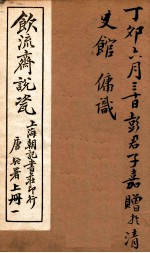 丁卯六月三十日彭君子嘉贈於清
史館 傭識
飲流齋說瓷
上海朝記書莊印行
唐駝署上冊一